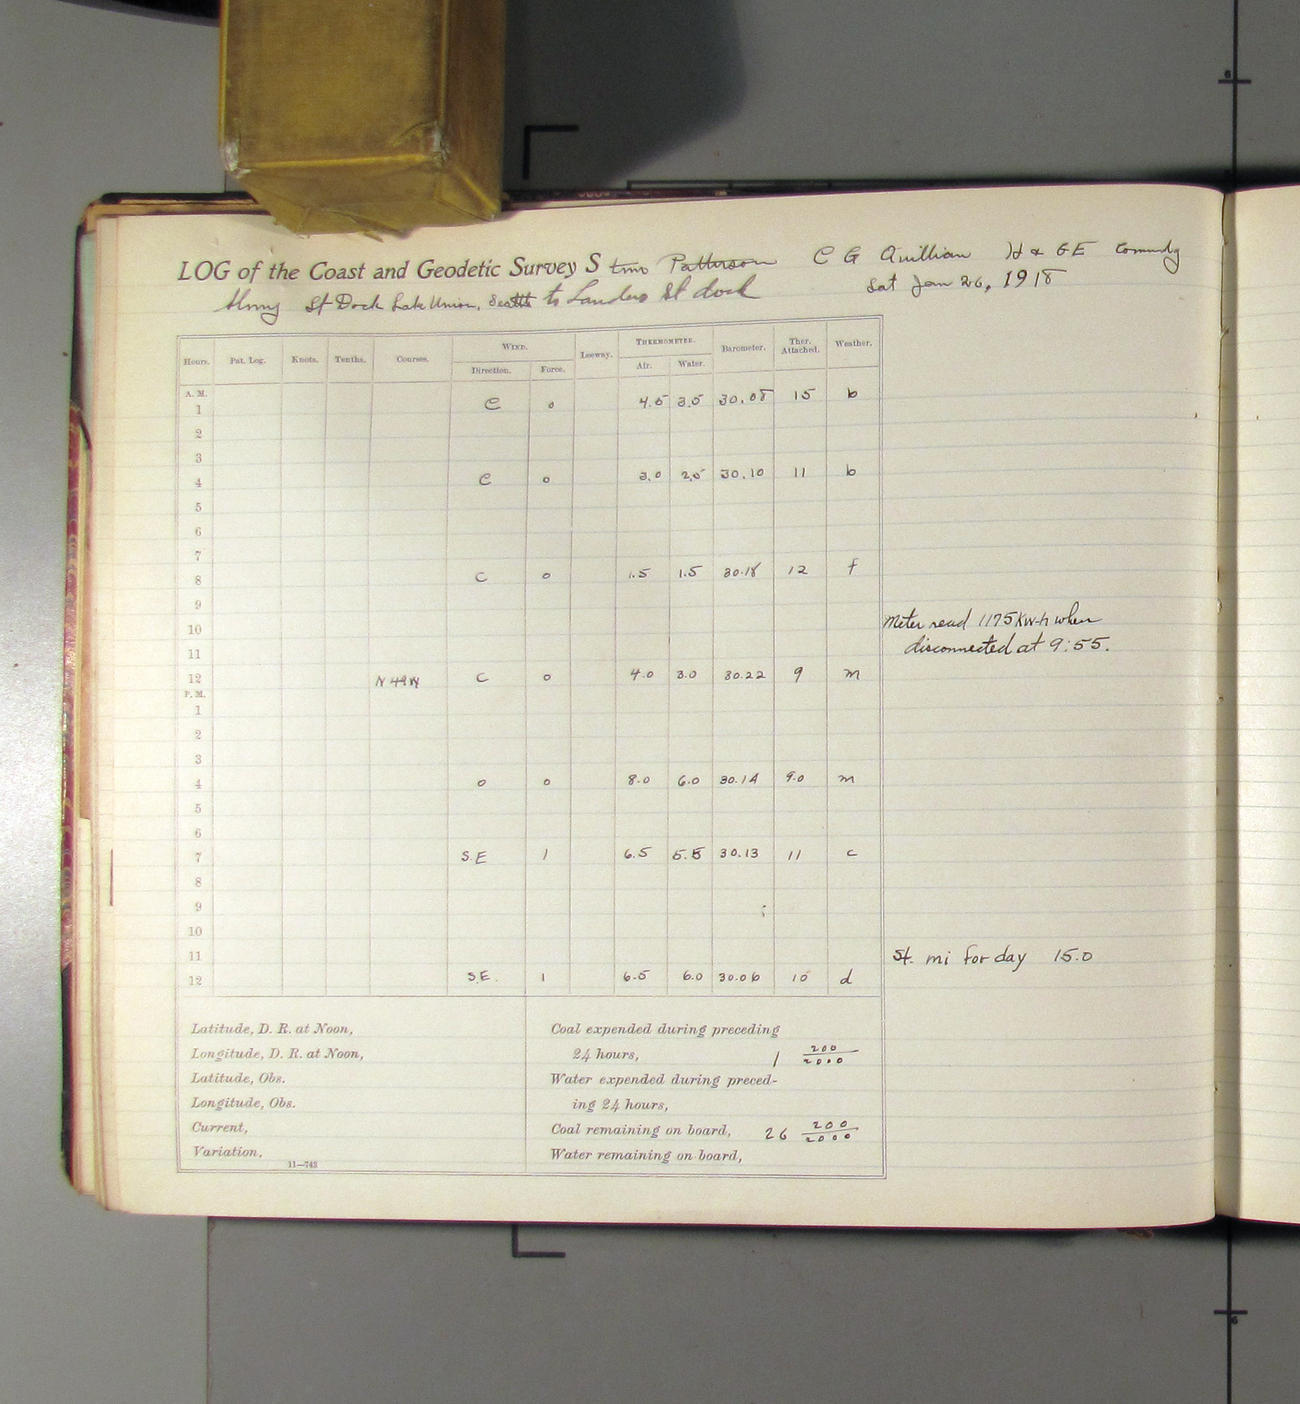 LOG of the Coast and Geodetic Survey Stmr Patterson C G Quillian H & GE Commdg
St Dock Lake Union, Seattle to Landers St dock Sat Jan 26, 1918
Hours. Pat. Log. Knots. Tenths. Courses. WIND. Leeway. THERMOMETER. Barometer. Ther. Attached. Weather.
Direction. Force. Air. Water.
A. M.
1 C 0 4.5 3.5 30.08 15 b
2
3
4 C 0 3.0 2.5 30.10 11 b
5
6
7
8 C 0 1.5 1.5 30.18 12 f
9
10 Meter read 1175 KW-h when
11 disconnected at 9:55.
12 C 0 4.0 3.0 30.22 9 m
P. M.
1
2
3
4 0 0 8.0 6.0 30.14 9.0 m
5
6
7 S.E 1 6.5 5.5 30.13 11 c
8
9
10
11 St. mi for day 15.0
12 S.E. 1 6.5 6.0 30.06 10 d
Latitude, D. R. at Noon, Coal expended during preceding
Longitude, D. R. at Noon, 24 hours, 1 200/2000
Latitude, Obs. Water expended during preced-
Longitude, Obs. ing 24 hours,
Current, Coal remaining on board, 26 200/2000
Variation, Water remaining on board,
11—743